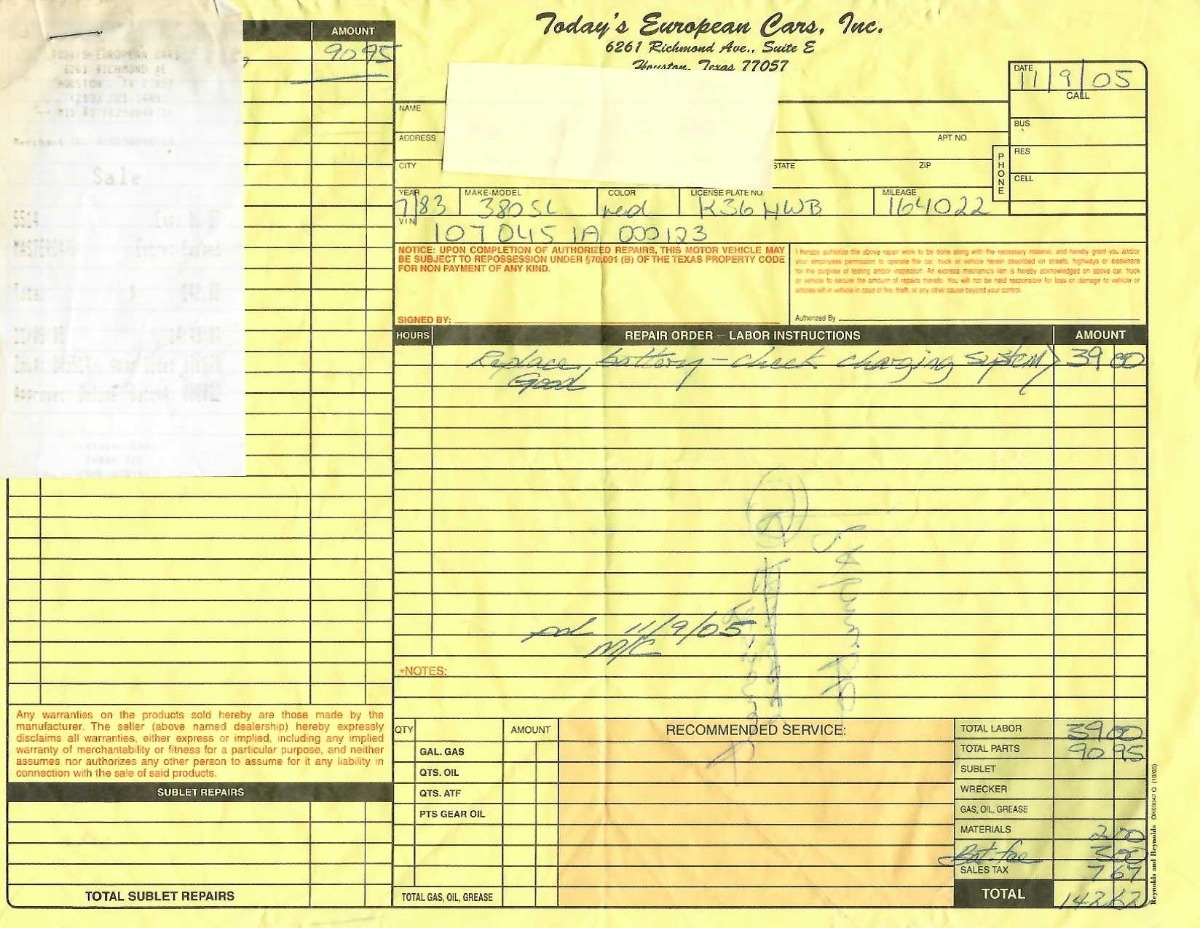 Today's European Cars, Inc.
6261 Richmond Ave., Suite E
Houston, Texas 77057
AMOUNT
90 95
TODAY'S EUROPEAN CARS
6261 RICHMOND AE
HOUSTON
Sale
5514
MASTERCARD
Total: $
DATE
11/9/05
CALL
NAME
BUS
ADDRESS
APT NO.
RES
CITY
STATE
ZIP
PHONE
CELL
YEAR
7/83
MAKE-MODEL
380SL
COLOR
red
LICENSE PLATE NO.
K36 HWB
MILEAGE
164022
VIN
107 045 1A 000123
NOTICE: UPON COMPLETION OF AUTHORIZED REPAIRS, THIS MOTOR VEHICLE MAY
BE SUBJECT TO REPOSSESSION UNDER §70.001 (B) OF THE TEXAS PROPERTY CODE
FOR NON PAYMENT OF ANY KIND.
SIGNED BY:
I hereby authorize the above repair work to be done along with the necessary material, and hereby grant you and/or
your employees permission to operate the car, truck or vehicle herein described on streets, highways or elsewhere
for the purpose of testing and/or inspection. An express mechanic's lien is hereby acknowledged on above car, truck
or vehicle to secure the amount of repairs thereto. You will not be held responsible for loss or damage to vehicle or
articles left in vehicle in case of fire, theft, or any other cause beyond your control.
Authorized By
HOURS
REPAIR ORDER – LABOR INSTRUCTIONS
AMOUNT
Replace battery - check charging system) 39 00
Good
pd 11/9/05
M/C
*NOTES:
Any warranties on the products sold hereby are those made by the
manufacturer. The seller (above named dealership) hereby expressly
disclaims all warranties, either express or implied, including any implied
warranty of merchantability or fitness for a particular purpose, and neither
assumes nor authorizes any other person to assume for it any liability in
connection with the sale of said products.
SUBLET REPAIRS
TOTAL SUBLET REPAIRS
QTY
AMOUNT
GAL. GAS
QTS. OIL
QTS. ATF
PTS GEAR OIL
TOTAL GAS, OIL, GREASE
RECOMMENDED SERVICE:
TOTAL LABOR 39 00
TOTAL PARTS 90 95
SUBLET
WRECKER
GAS, OIL, GREASE
MATERIALS 2 00
Bat. fee 3 00
SALES TAX 7 67
TOTAL 142 62
Reynolds and Reynolds